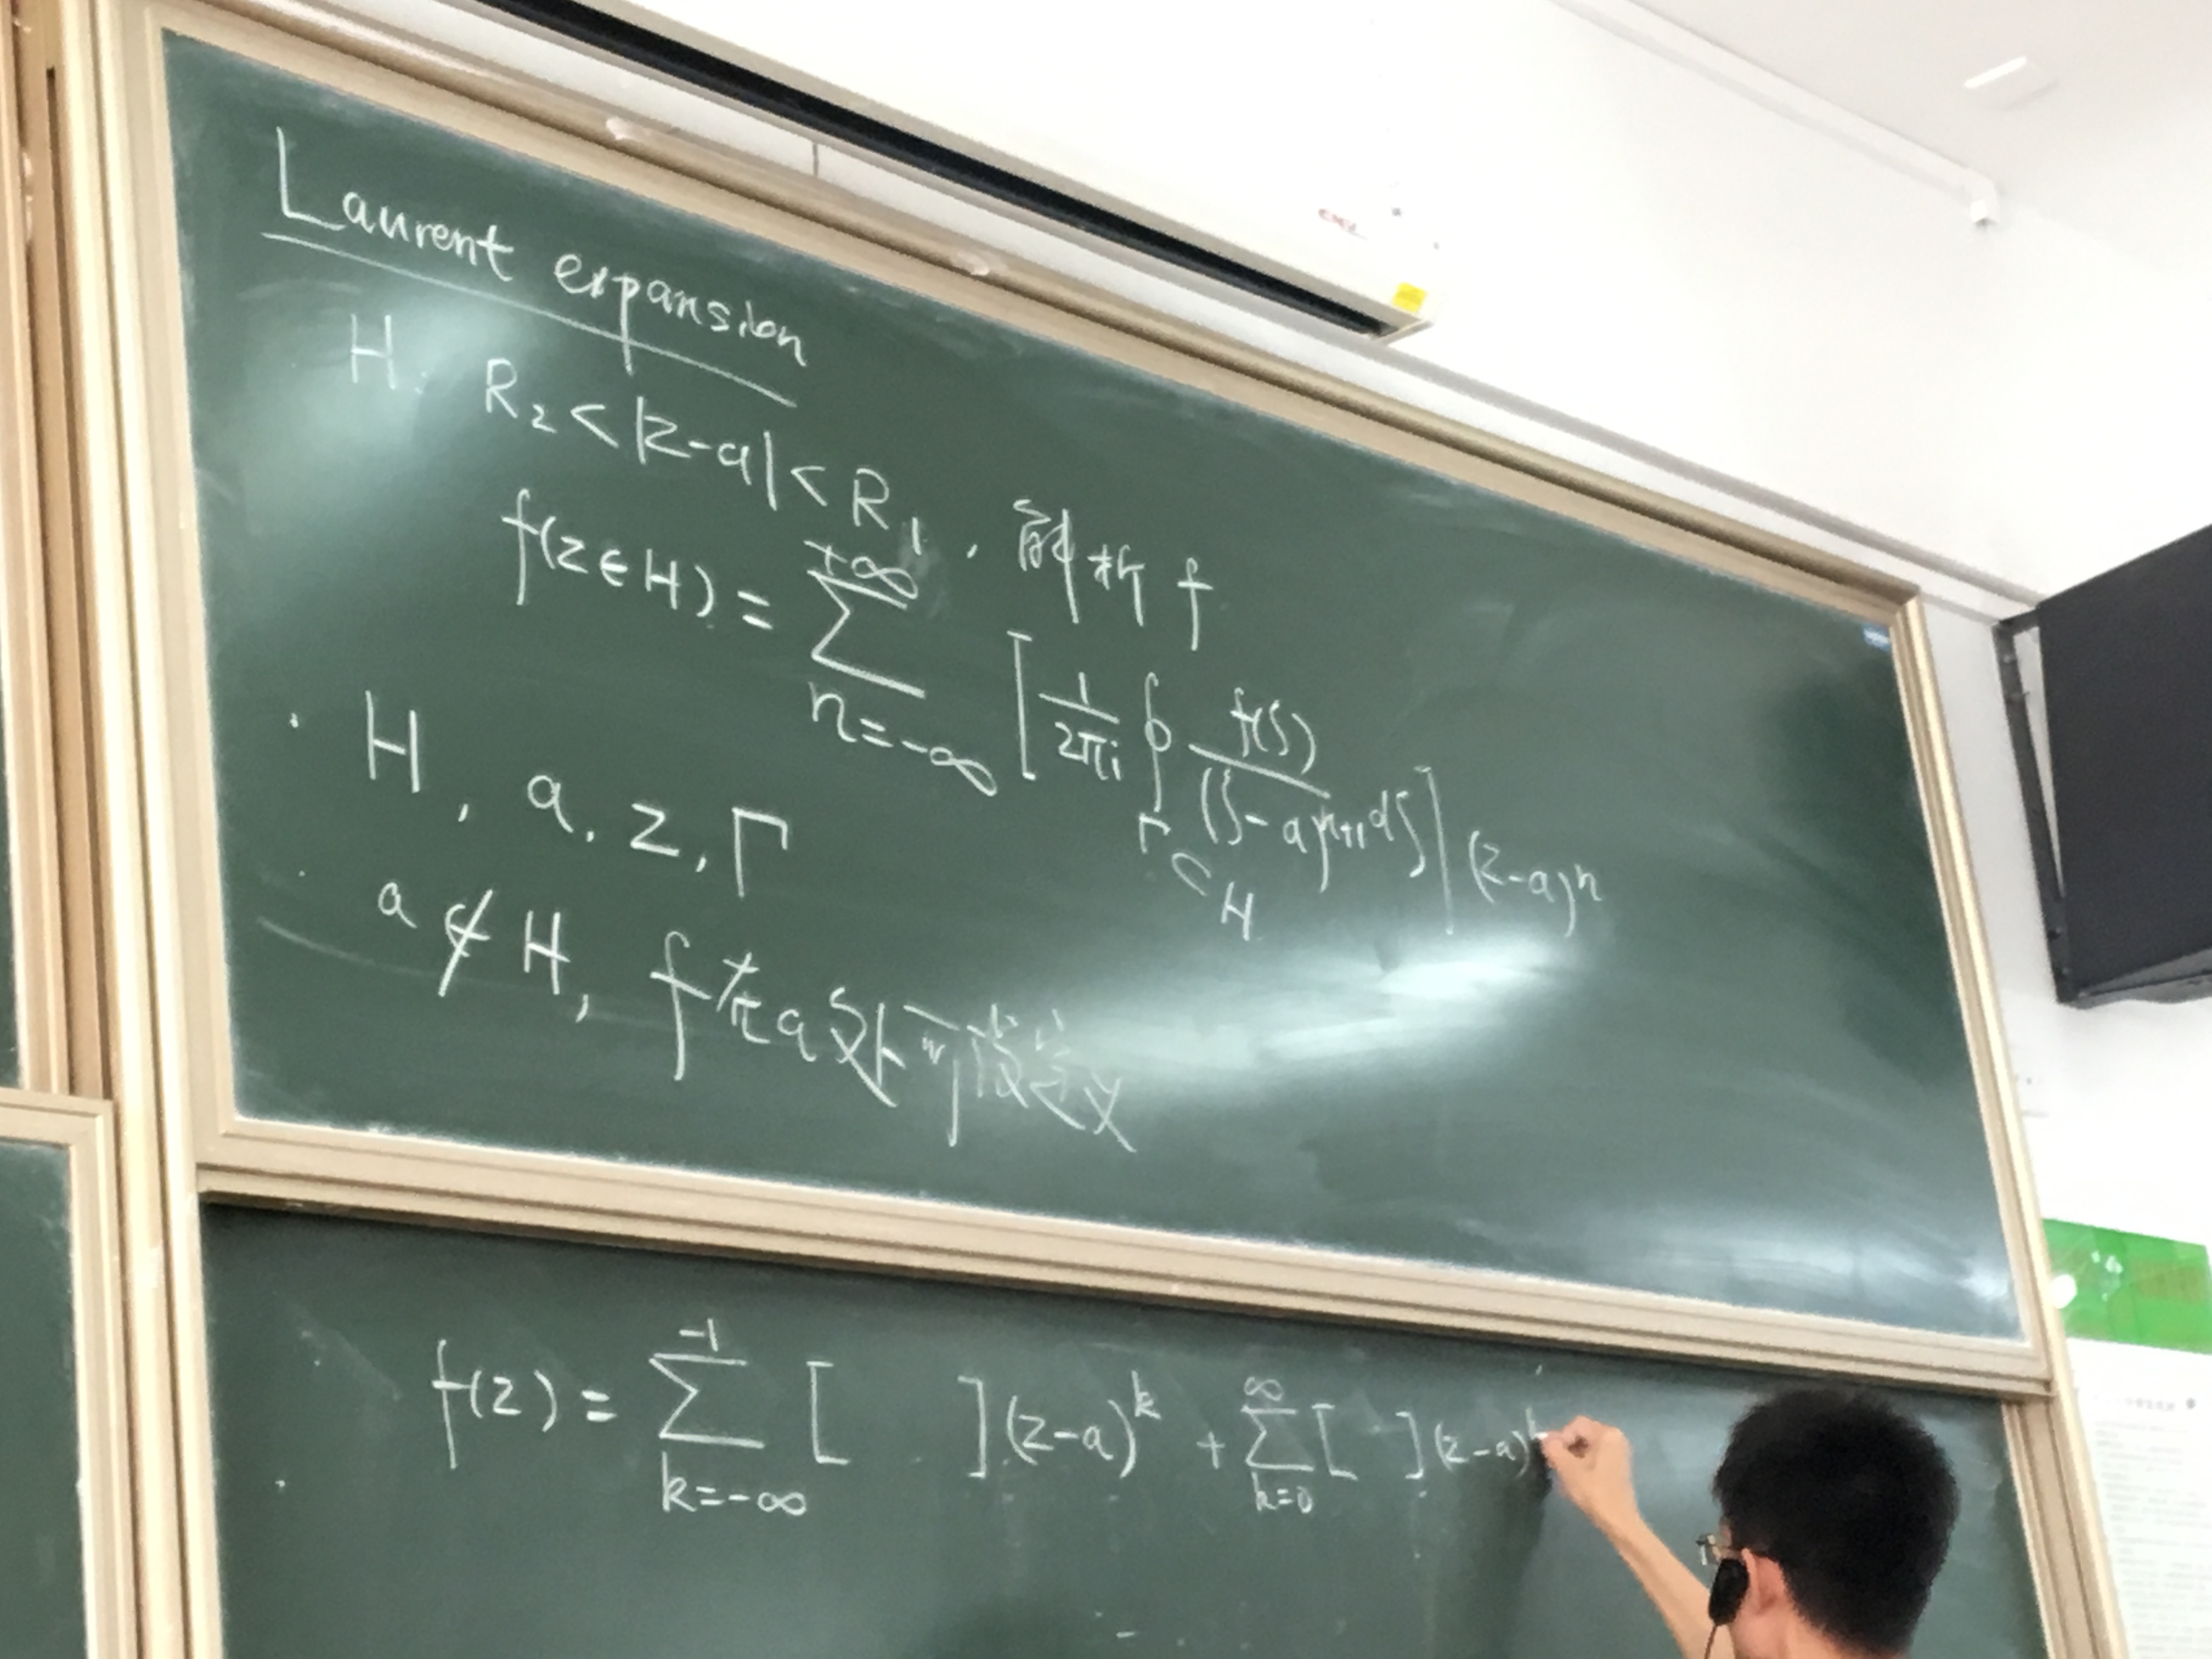 Laurent expansion
H: R₂ < |z-a| < R₁, 解析 f
f(z∈H) = \sum_{n=-∞}^{+∞} [ \frac{1}{2πi} \oint_{Γ⊂H} \frac{f(ζ)}{(ζ-a)^{n+1}} dζ ] (z-a)^n
· H, a, z, Γ
· a ∉ H, f在a处可没定义
f(z) = \sum_{k=-∞}^{-1} [ ] (z-a)^k + \sum_{k=0}^{∞} [ ] (z-a)^k